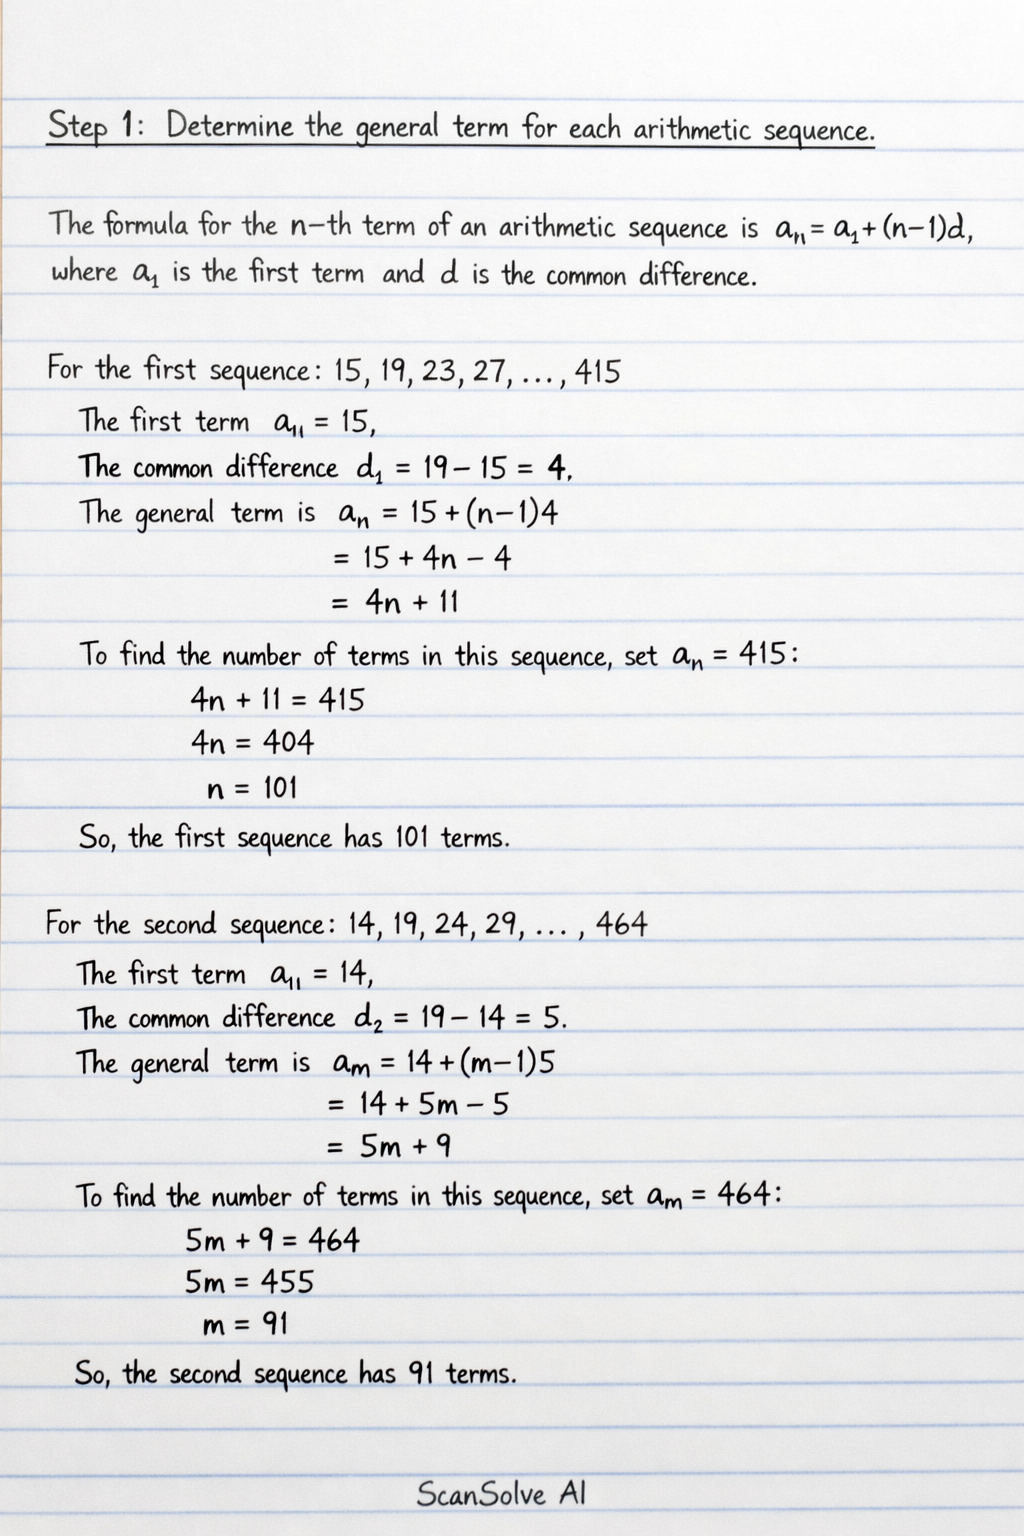 Step 1: Determine the general term for each arithmetic sequence.
The formula for the n-th term of an arithmetic sequence is aₙ = a₁ + (n−1)d,
where a₁ is the first term and d is the common difference.
For the first sequence: 15, 19, 23, 27, ..., 415
The first term a₁₁ = 15,
The common difference d₁ = 19 − 15 = 4.
The general term is aₙ = 15 + (n−1)4
= 15 + 4n − 4
= 4n + 11
To find the number of terms in this sequence, set aₙ = 415:
4n + 11 = 415
4n = 404
n = 101
So, the first sequence has 101 terms.
For the second sequence: 14, 19, 24, 29, ..., 464
The first term a₁₁ = 14,
The common difference d₂ = 19 − 14 = 5.
The general term is aₘ = 14 + (m−1)5
= 14 + 5m − 5
= 5m + 9
To find the number of terms in this sequence, set aₘ = 464:
5m + 9 = 464
5m = 455
m = 91
So, the second sequence has 91 terms.
ScanSolve AI